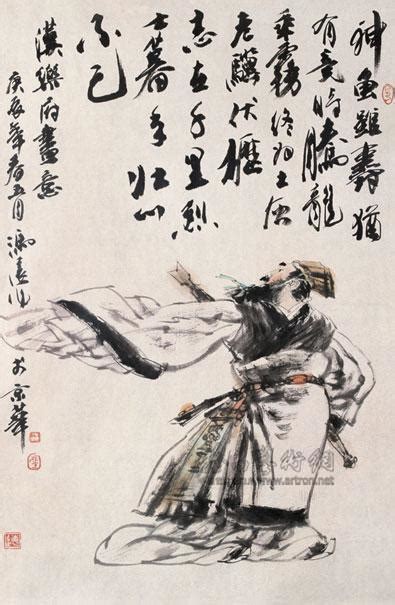 神龟雖壽猶
有竟时騰龍
乘霧終为土灰
老驥伏櫪
志在千里烈
士暮年壮心
不已
漢樂府畫意
庚辰年春五月馮遠作
於京華
www.artron.net